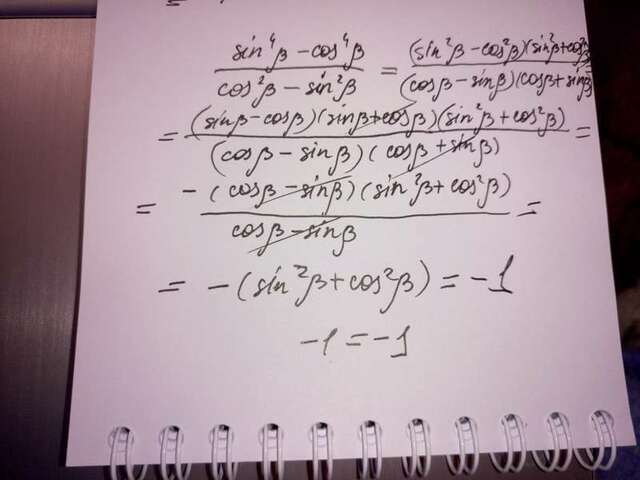 =
sin⁴β − cos⁴β / cos²β − sin²β = (sin²β − cos²β)(sin²β + cos²β) / (cosβ − sinβ)(cosβ + sinβ)
= (sinβ − cosβ)(sinβ + cosβ)(sin²β + cos²β) / (cosβ − sinβ)(cosβ + sinβ) =
= −(cosβ − sinβ)(sin²β + cos²β) / cosβ − sinβ =
= −(sin²β + cos²β) = −1
−1 = −1